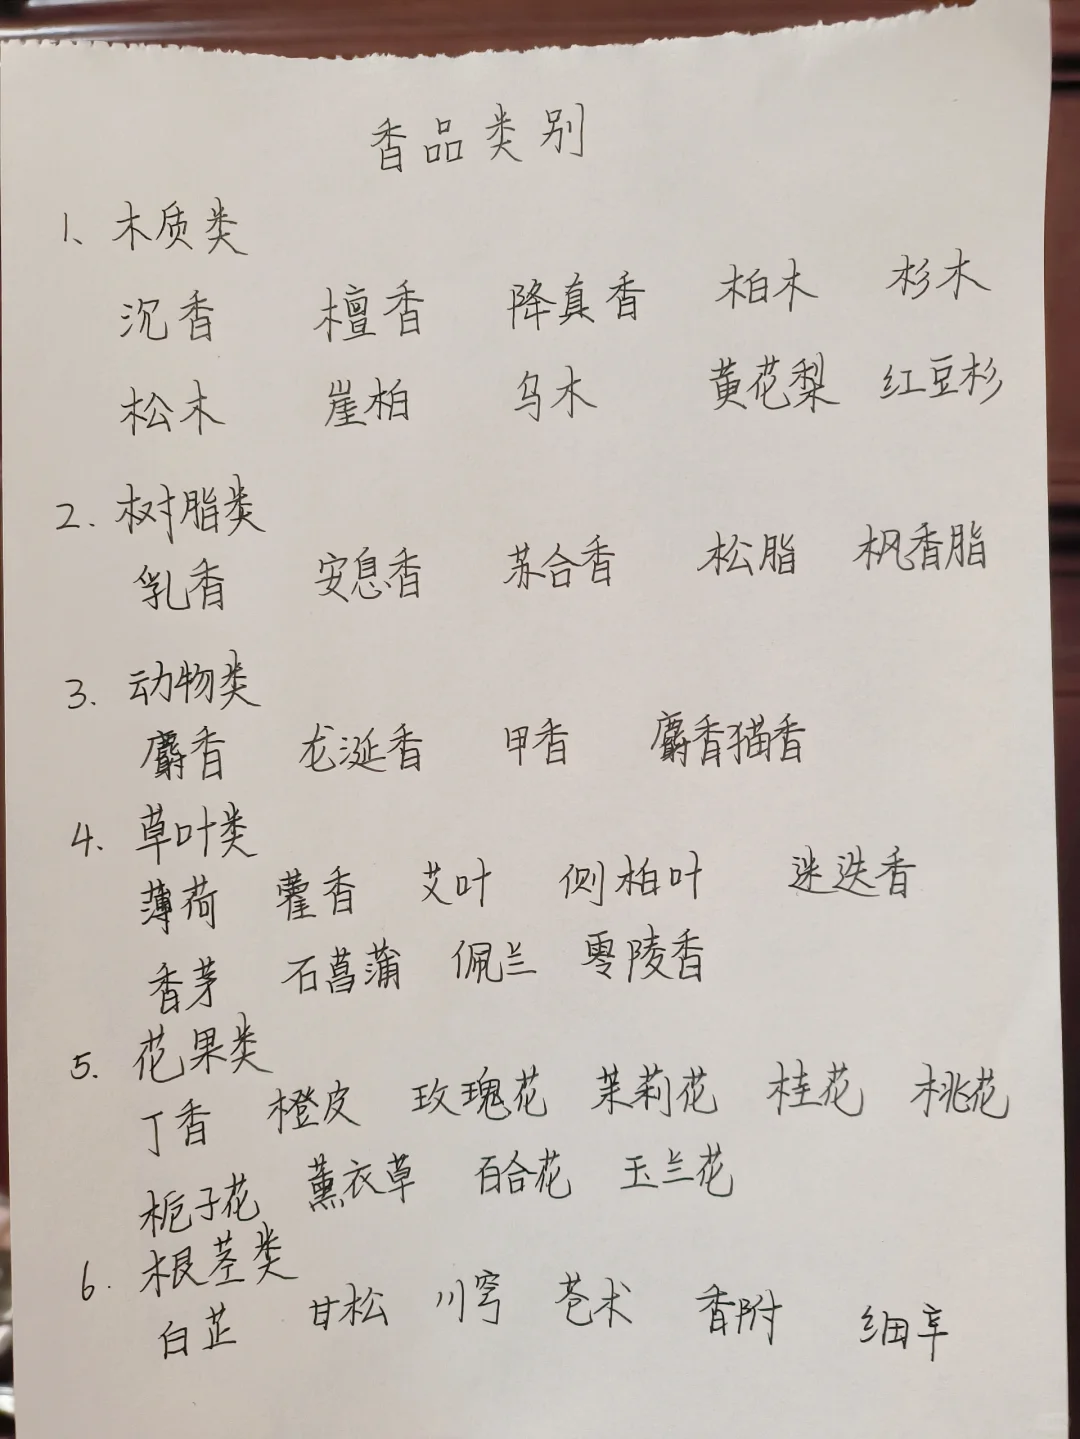 香品类别
1、木质类
沉香 檀香 降真香 柏木 杉木
松木 崖柏 乌木 黄花梨 红豆杉
2. 树脂类
乳香 安息香 苏合香 松脂 枫香脂
3. 动物类
麝香 龙涎香 甲香 麝香猫香
4. 草叶类
薄荷 藿香 艾叶 侧柏叶 迷迭香
香茅 石菖蒲 佩兰 零陵香
5. 花果类
丁香 橙皮 玫瑰花 茉莉花 桂花 桃花
栀子花 薰衣草 百合花 玉兰花
6. 根茎类
白芷 甘松 川穹 苍术 香附 细辛